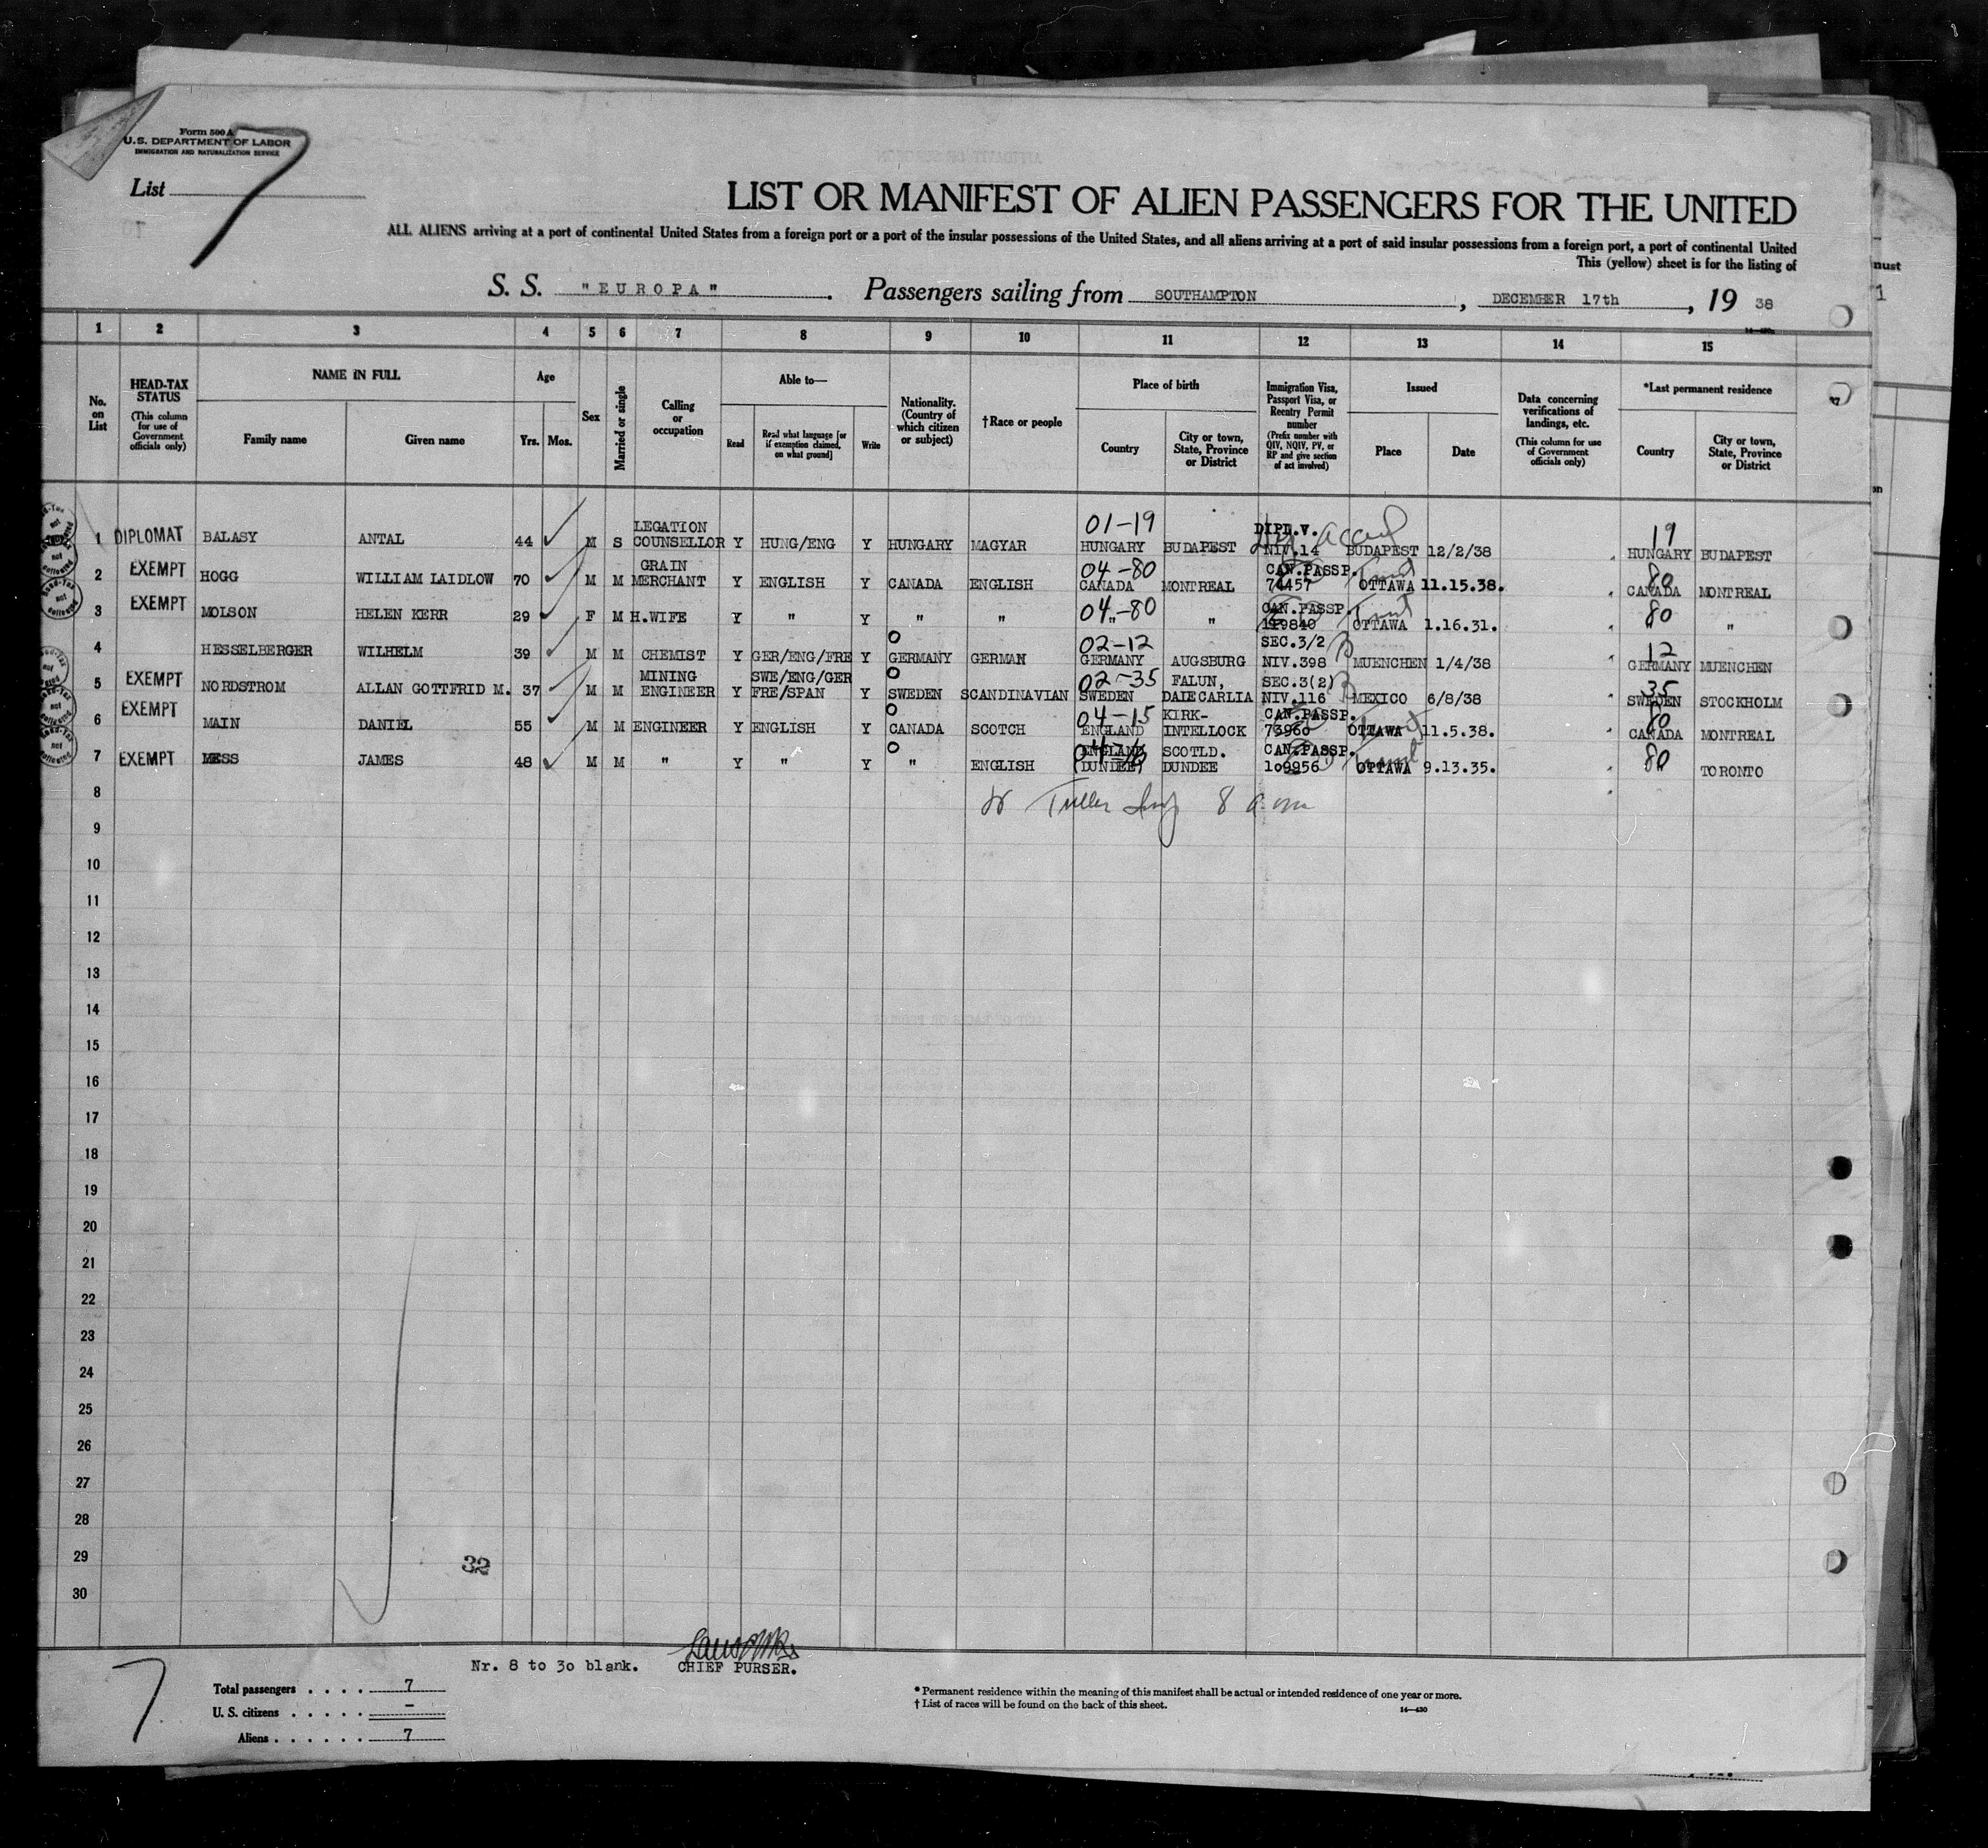 Form 500 A
U.S. DEPARTMENT OF LABOR
IMMIGRATION AND NATURALIZATION SERVICE
List 7
LIST OR MANIFEST OF ALIEN PASSENGERS FOR THE UNITED
ALL ALIENS arriving at a port of continental United States from a foreign port or a port of the insular possessions of the United States, and all aliens arriving at a port of said insular possessions from a foreign port, a port of continental United
This (yellow) sheet is for the listing of
S. S. "EUROPA" Passengers sailing from SOUTHAMPTON, DECEMBER 17th, 19 38
1 2 3 4 5 6 7 8 9 10 11 12 13 14 15
No. on List
HEAD-TAX STATUS
(This column for use of Government officials only)
NAME IN FULL
Family name
Given name
Age
Yrs. Mos.
Sex
Married or single
Calling or occupation
Able to—
Read
Read what language [or if exemption claimed, on what ground]
Write
Nationality. (Country of which citizen or subject)
†Race or people
Place of birth
Country
City or town, State, Province or District
Immigration Visa, Passport Visa, or Reentry Permit number
(Prefix number with QIV, NQIV, PV, or RP and give section of act involved)
Issued
Place
Date
Data concerning verifications of landings, etc.
(This column for use of Government officials only)
*Last permanent residence
Country
City or town, State, Province or District
1 DIPLOMAT BALASY ANTAL 44 M S LEGATION COUNSELLOR Y HUNG/ENG Y HUNGARY MAGYAR 01-19 HUNGARY BUDAPEST DIPL.V. NIV.14 BUDAPEST 12/2/38 19 HUNGARY BUDAPEST
2 EXEMPT HOGG WILLIAM LAIDLOW 70 M M GRAIN MERCHANT Y ENGLISH Y CANADA ENGLISH 04-80 CANADA MONTREAL CAN.PASSP. 74457 OTTAWA 11.15.38. 80 CANADA MONTREAL
3 EXEMPT MOLSON HELEN KERR 29 F M H.WIFE Y " Y " " 04-80 " " CAN.PASSP. 119840 OTTAWA 1.16.31. 80 " "
4 HESSELBERGER WILHELM 39 M M CHEMIST Y GER/ENG/FRE Y 0 GERMANY GERMAN 02-12 GERMANY AUGSBURG SEC.3/2 NIV.398 MUENCHEN 1/4/38 12 GERMANY MUENCHEN
5 EXEMPT NORDSTROM ALLAN GOTTFRID M. 37 M M MINING ENGINEER Y SWE/ENG/GER FRE/SPAN Y 0 SWEDEN SCANDINAVIAN 02-35 SWEDEN FALUN, DALECARLIA SEC.3(2) NIV.116 MEXICO 6/8/38 35 SWEDEN STOCKHOLM
6 EXEMPT MAIN DANIEL 55 M M ENGINEER Y ENGLISH Y 0 CANADA SCOTCH 04-15 ENGLAND KIRK- INTELLOCK CAN.PASSP. 73960 OTTAWA 11.5.38. 80 CANADA MONTREAL
7 EXEMPT MESS JAMES 48 M M " Y " Y 0 " ENGLISH ENGLAND DUNDEE SCOTLD. DUNDEE CAN.PASSP. 109956 OTTAWA 9.13.35. 80 TORONTO
8 8 a m
9
10
11
12
13
14
15
16
17
18
19
20
21
22
23
24
25
26
27
28
29
30
32
Nr. 8 to 30 blank. CHIEF PURSER.
7
Total passengers . . . . 7
U. S. citizens . . . . . –
Aliens . . . . . . 7
* Permanent residence within the meaning of this manifest shall be actual or intended residence of one year or more.
† List of races will be found on the back of this sheet.
14—430